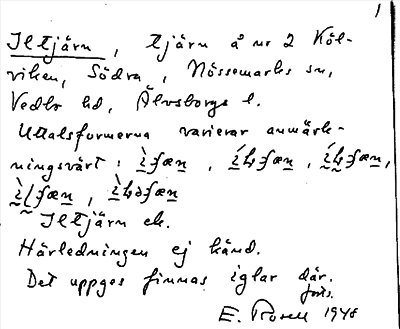 1
Iltjärn, tjärn å nr 2 Köl-
viken, Södra, Nössemarks sn,
Vedbo hd, Älvsborgs l.
Uttalsformerna varierar anmärk-
ningsvärt:
Iltjärn etc.
Härledningen ej känd.
Det uppges finnas iglar där.
forts.
E. Rosell 1948